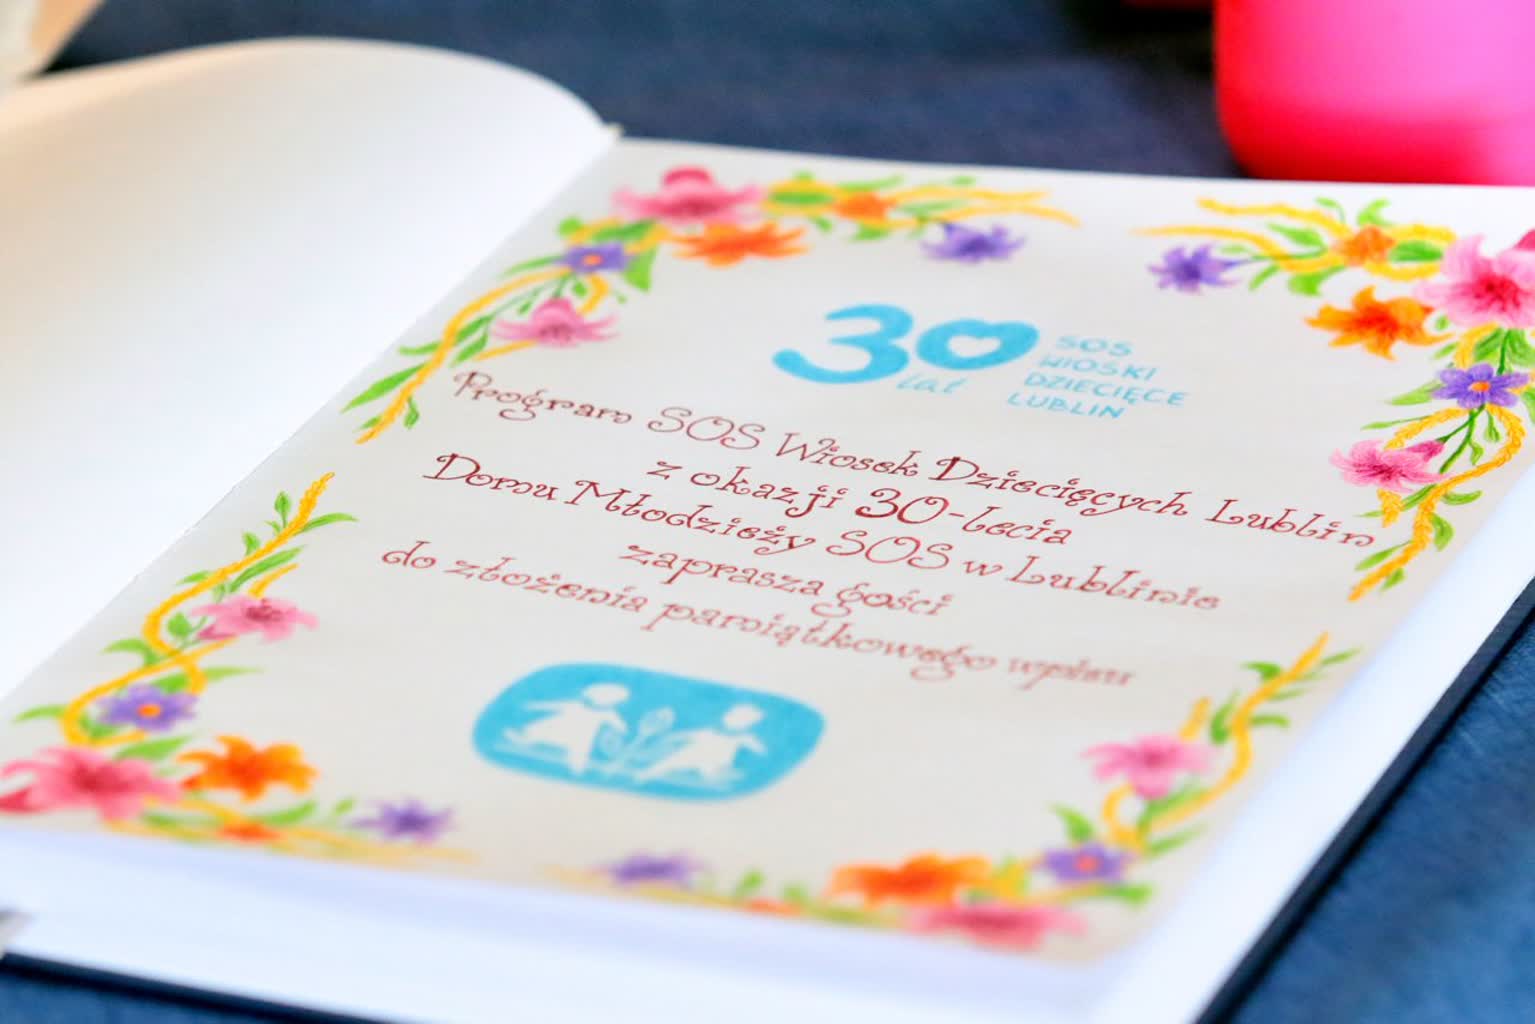 30
lat
SOS
WIOSKI
DZIECIĘCE
LUBLIN
Program SOS Wiosek Dziecięcych Lublin
z okazji 30-lecia
Domu Młodzieży SOS w Lublinie
zaprasza gości
do złożenia pamiątkowego wpisu